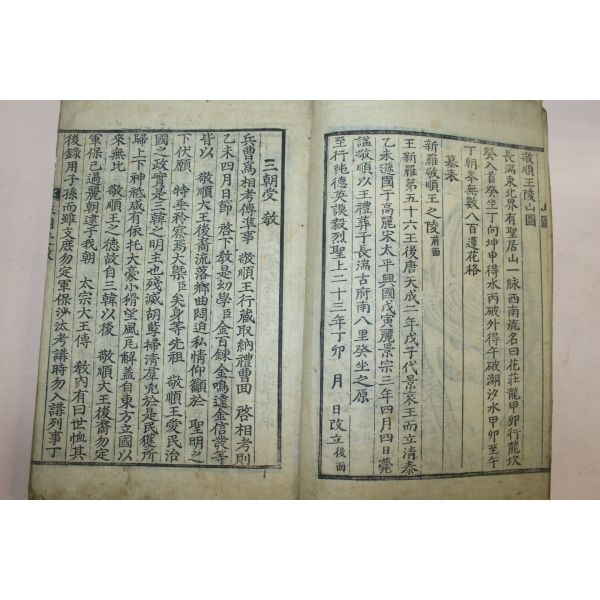 敬順王陵山圖
長湍東北界有聖居山一脉西南流名曰花莊龍甲卯行龍坎
癸入首癸坐丁向坤申得水丙破外得午破潮汐水甲卯至午
丁朝峯無數八百蓮花格
墓表
新羅敬順王之陵前面
王新羅第五十六王後唐天成二年戊子代景哀王而立清泰
乙未遜國于高麗宋太平興國戊寅麗景宗三年四月四日薨
謚敬順以王禮葬于長湍古府南八里癸坐之原
至行純德英謨毅烈聖上二十三年丁卯 月 日改立後面
三朝受 敎
兵曹爲相考傳準事 敬順王行蔵取納禮曹回 啓相考則
乙未四月日節 啓下敎是幼學臣金百鍊金鳴遠金信 等
皆以 敬順大王後裔流落鄉曲闊迫私情仰籲於 聖明之
下伏願 特垂矜察焉大槩臣矣身等先祖 敬順王愛民治
國之政實是三韓之明主也殘滅胡蕚掃清羣兇於是民獲所
歸上下神祗咸有依托大豪小獝望風瓦解盖自東方立國以
來無比 敬順王之德故自三韓以後 敬順大王後裔勿定
軍保已過麗朝逮于我朝 太宗大王傳 敎內有曰世恤其
後錄用子孫而雖支庶勿定軍保沙汰考講時勿入講列事丁